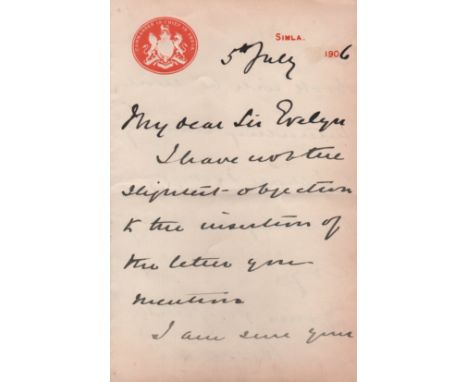 COMMANDER IN CHIEF IN INDIA
SIMLA.
5th July 1906
My dear Sir Evelyn
I have not the
slightest objection
to the insertion of
the letter you
mention
I am sure your